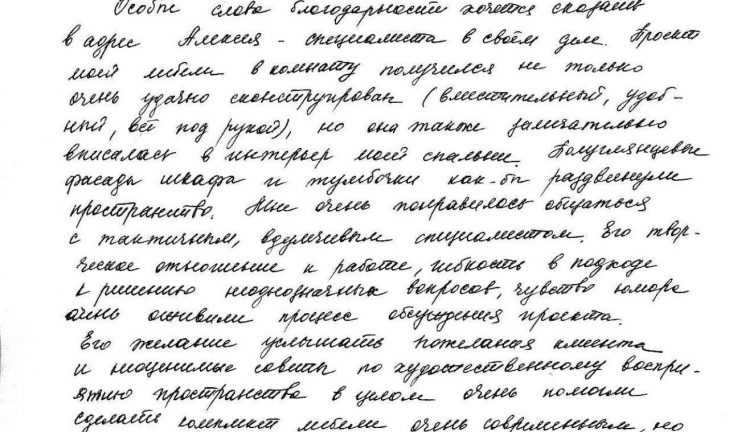 Особые слова благодарности хочется сказать
в адрес Алексея - специалиста в своём деле. Проект
моей мебели в комнату получился не только
очень удачно сконструирован (вместительный, удоб-
ный, всё под рукой), но она также замечательно
вписалась в интерьер моей спальни. Полуглянцевые
фасады шкафа и тумбочки как-бы раздвинули
пространство. Мне очень понравилось общаться
с тактичным, вдумчивым специалистом. Его твор-
ческое отношение к работе, гибкость в подходе
к решению неоднозначных вопросов, чувство юмора
очень оживили процесс обсуждения проекта.
Его желание услышать пожелания клиента
и неоценимые советы по художественному воспри-
ятию пространства в целом очень помогли
сделать комплект мебели очень современным, но